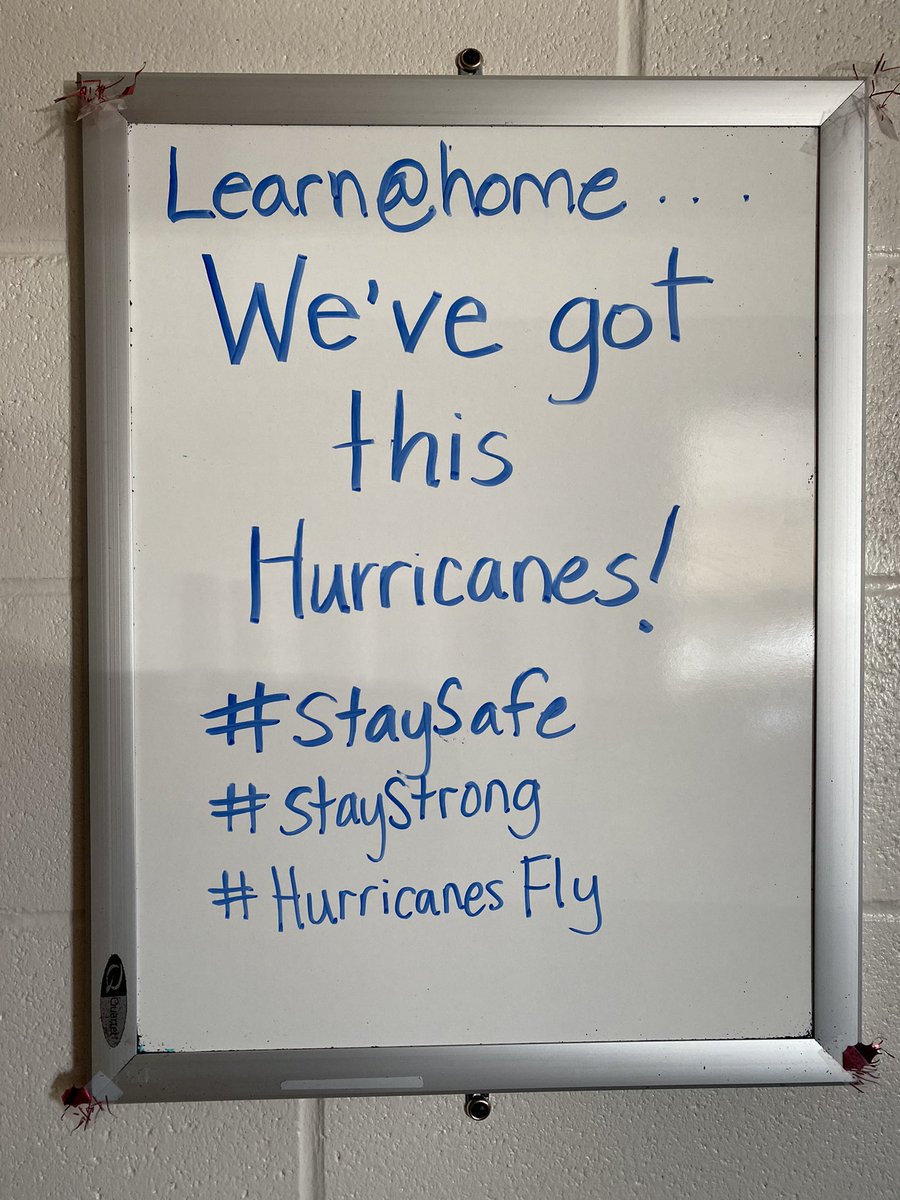 Learn@home....
We've got
this
Hurricanes!
#StaySafe
#StayStrong
#Hurricanes Fly
Quartet